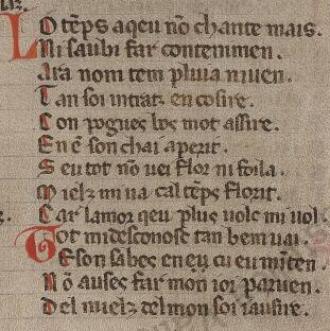 LO tẽps aqeu nõ chante mais.
Ni saubi far contenimen.
Ara nom tem pluia niuen.
Tan soi intratz en cosire.
Con pogues bos mot assire.
En ẽ son chai aperit.
Seu tot nõ uei flor ni foila.
Mielz mi ua cal tẽps florit.
Car lamor qeu plus uolc mi uol.
Tot mi desconosc tan bem uai.
E son sabes en ẽu cu eu mĩten
Nõ ausес far mon ioi paruen.
Del mielz del mon soi iausire.